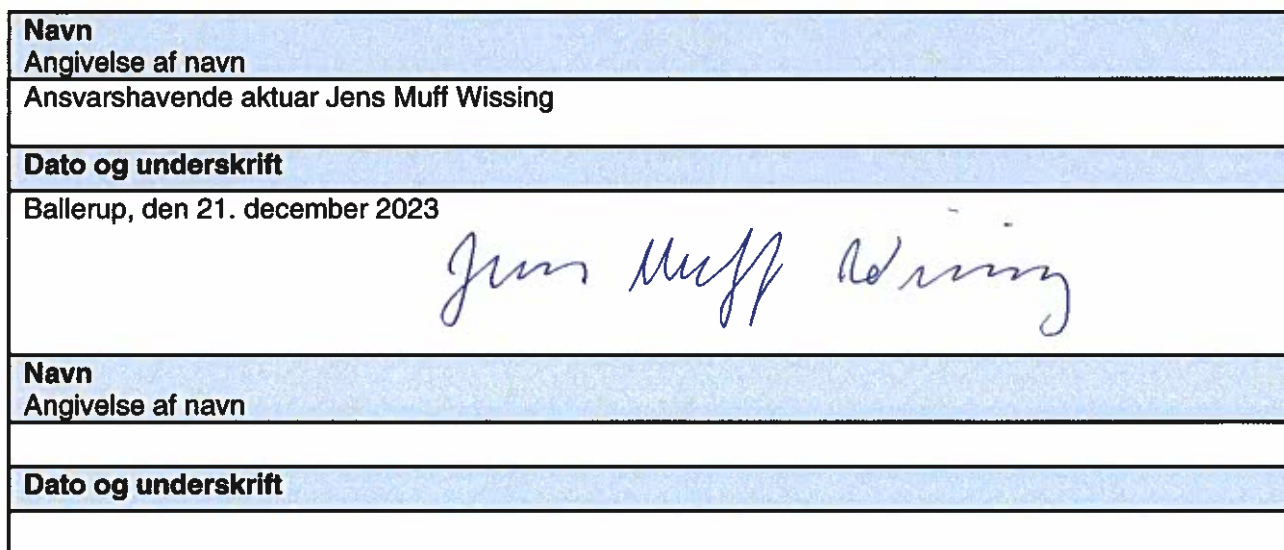 Navn
Angivelse af navn
Ansvarshavende aktuar Jens Muff Wissing
Dato og underskrift
Ballerup, den 21. december 2023
Jens Muff Wissing
Navn
Angivelse af navn
Dato og underskrift